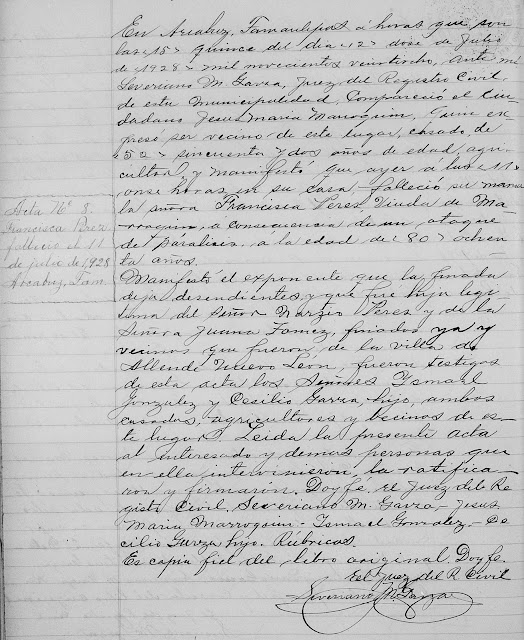 En Arcabuz, Tamaulipas á horas que son
las <15> quince del dia <12> dose de Julio
de <1928> mil novecientos veintiocho, Ante mi
Severiano M. Garza, Juez del Registro Civil,
de esta Municipalidad, Compareció el Ciu-
dadano Jesus Maria Marroquin, quien ex-
presó ser vecino de este lugar, casado, de
<52> sincuenta y dos años de edad, agri-
cultor, y manifestó que ayer á las <11>
onse horas en su casa, falleció su mamá
la señora Francisca Peres, Viuda de Ma-
rroquin, a consecuencia de un ataque
de paralisis, a la edad de <80> ochen
ta años.
Manifestó el exponente que la finada
deja desendientes y que fué hija legi-
tima del Señor Narziso Peres y de la
Señora Juana Tamez, finados ya y
vecinos que fueron, de la villa de
Allende Nuevo León, fueron testigos
de esta acta los Señores Ismael
Gonzalez y Cecilio Garza, hijo, ambos
casados, agricultores y becinos de es-
te lugar. Leida la presente acta
al interesado y demas personas que
en ella intervinieron, la ratifica-
ron y firmarón. Doy fé, el Juez del Re
gistro Civil, Severiano M. Garza,- Jesus
Maria Marroquin - Ismael Gonzalez,- Ce
cilio Garza hijo. Rubricas.
Es copia fiel del libro original. Doy fe.
El Juez del R. Civil
Severiano M. Garza
Acta Nº 8.
Francisca Perez
fallecio el 11
de julio de 1928
Arcabuz, Tam